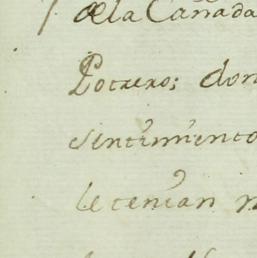 de la Cañada
Potrero; don
sentimiento
le tenian